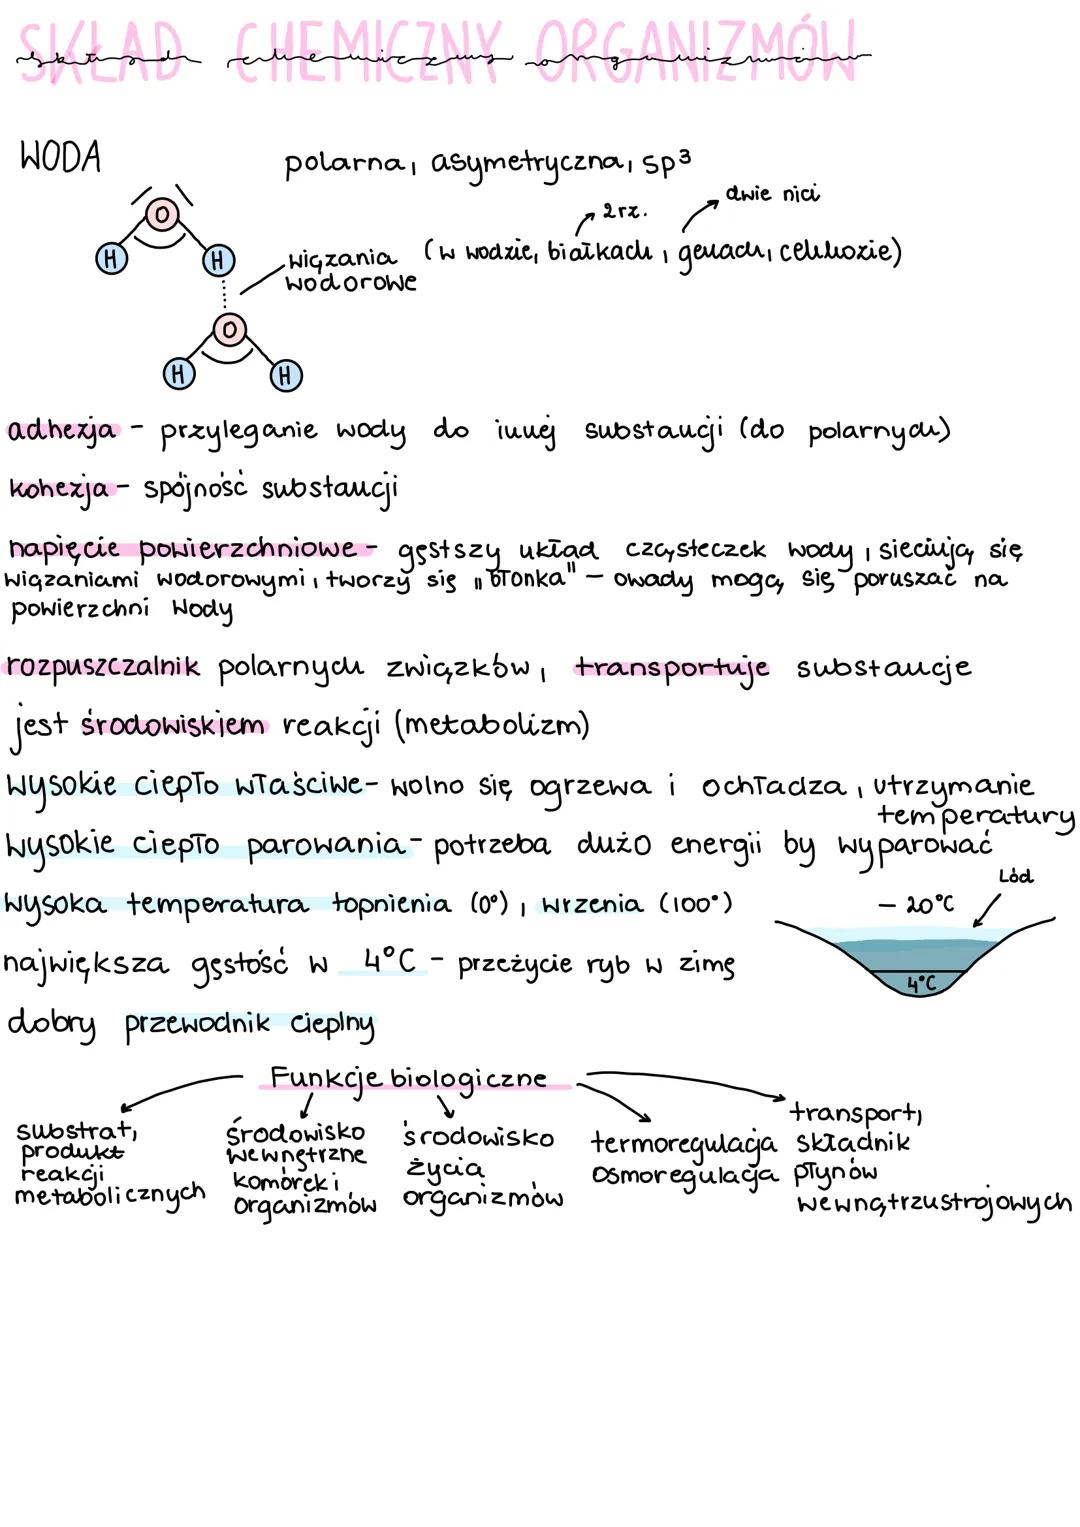 SKŁAD CHEMICZNY ORGANIZMÓW
skład chemiczny organizmów
WODA
polarna, asymetryczna, sp³
2rz.
dwie nici
wiązania (w wodzie, białkach, genach, celulozie)
wodorowe
O
H
H
O
H
H
adhezja - przyleganie wody do innej substancji (do polarnych)
kohezja - spójność substancji
napięcie powierzchniowe - gęstszy układ cząsteczek wody, sieciują się
wiązaniami wodorowymi, tworzy się "błonka" - owady mogą się poruszać na
powierzchni wody
rozpuszczalnik polarnych związków, transportuje substancje
jest środowiskiem reakcji (metabolizm)
wysokie ciepło właściwe - wolno się ogrzewa i ochładza, utrzymanie
temperatury
wysokie ciepło parowania - potrzeba dużo energii by wyparować
Lód
wysoka temperatura topnienia (0°), wrzenia (100°)
- 20°C
największa gęstość w 4°C - przeżycie ryb w zimę
4°C
dobry przewodnik cieplny
Funkcje biologiczne
substrat,
produkt
reakcji
metabolicznych
środowisko
wewnętrzne
komórek i
organizmów
środowisko
życia
organizmów
termoregulacja
osmoregulacja
transport,
składnik
płynów
wewnątrzustrojowych